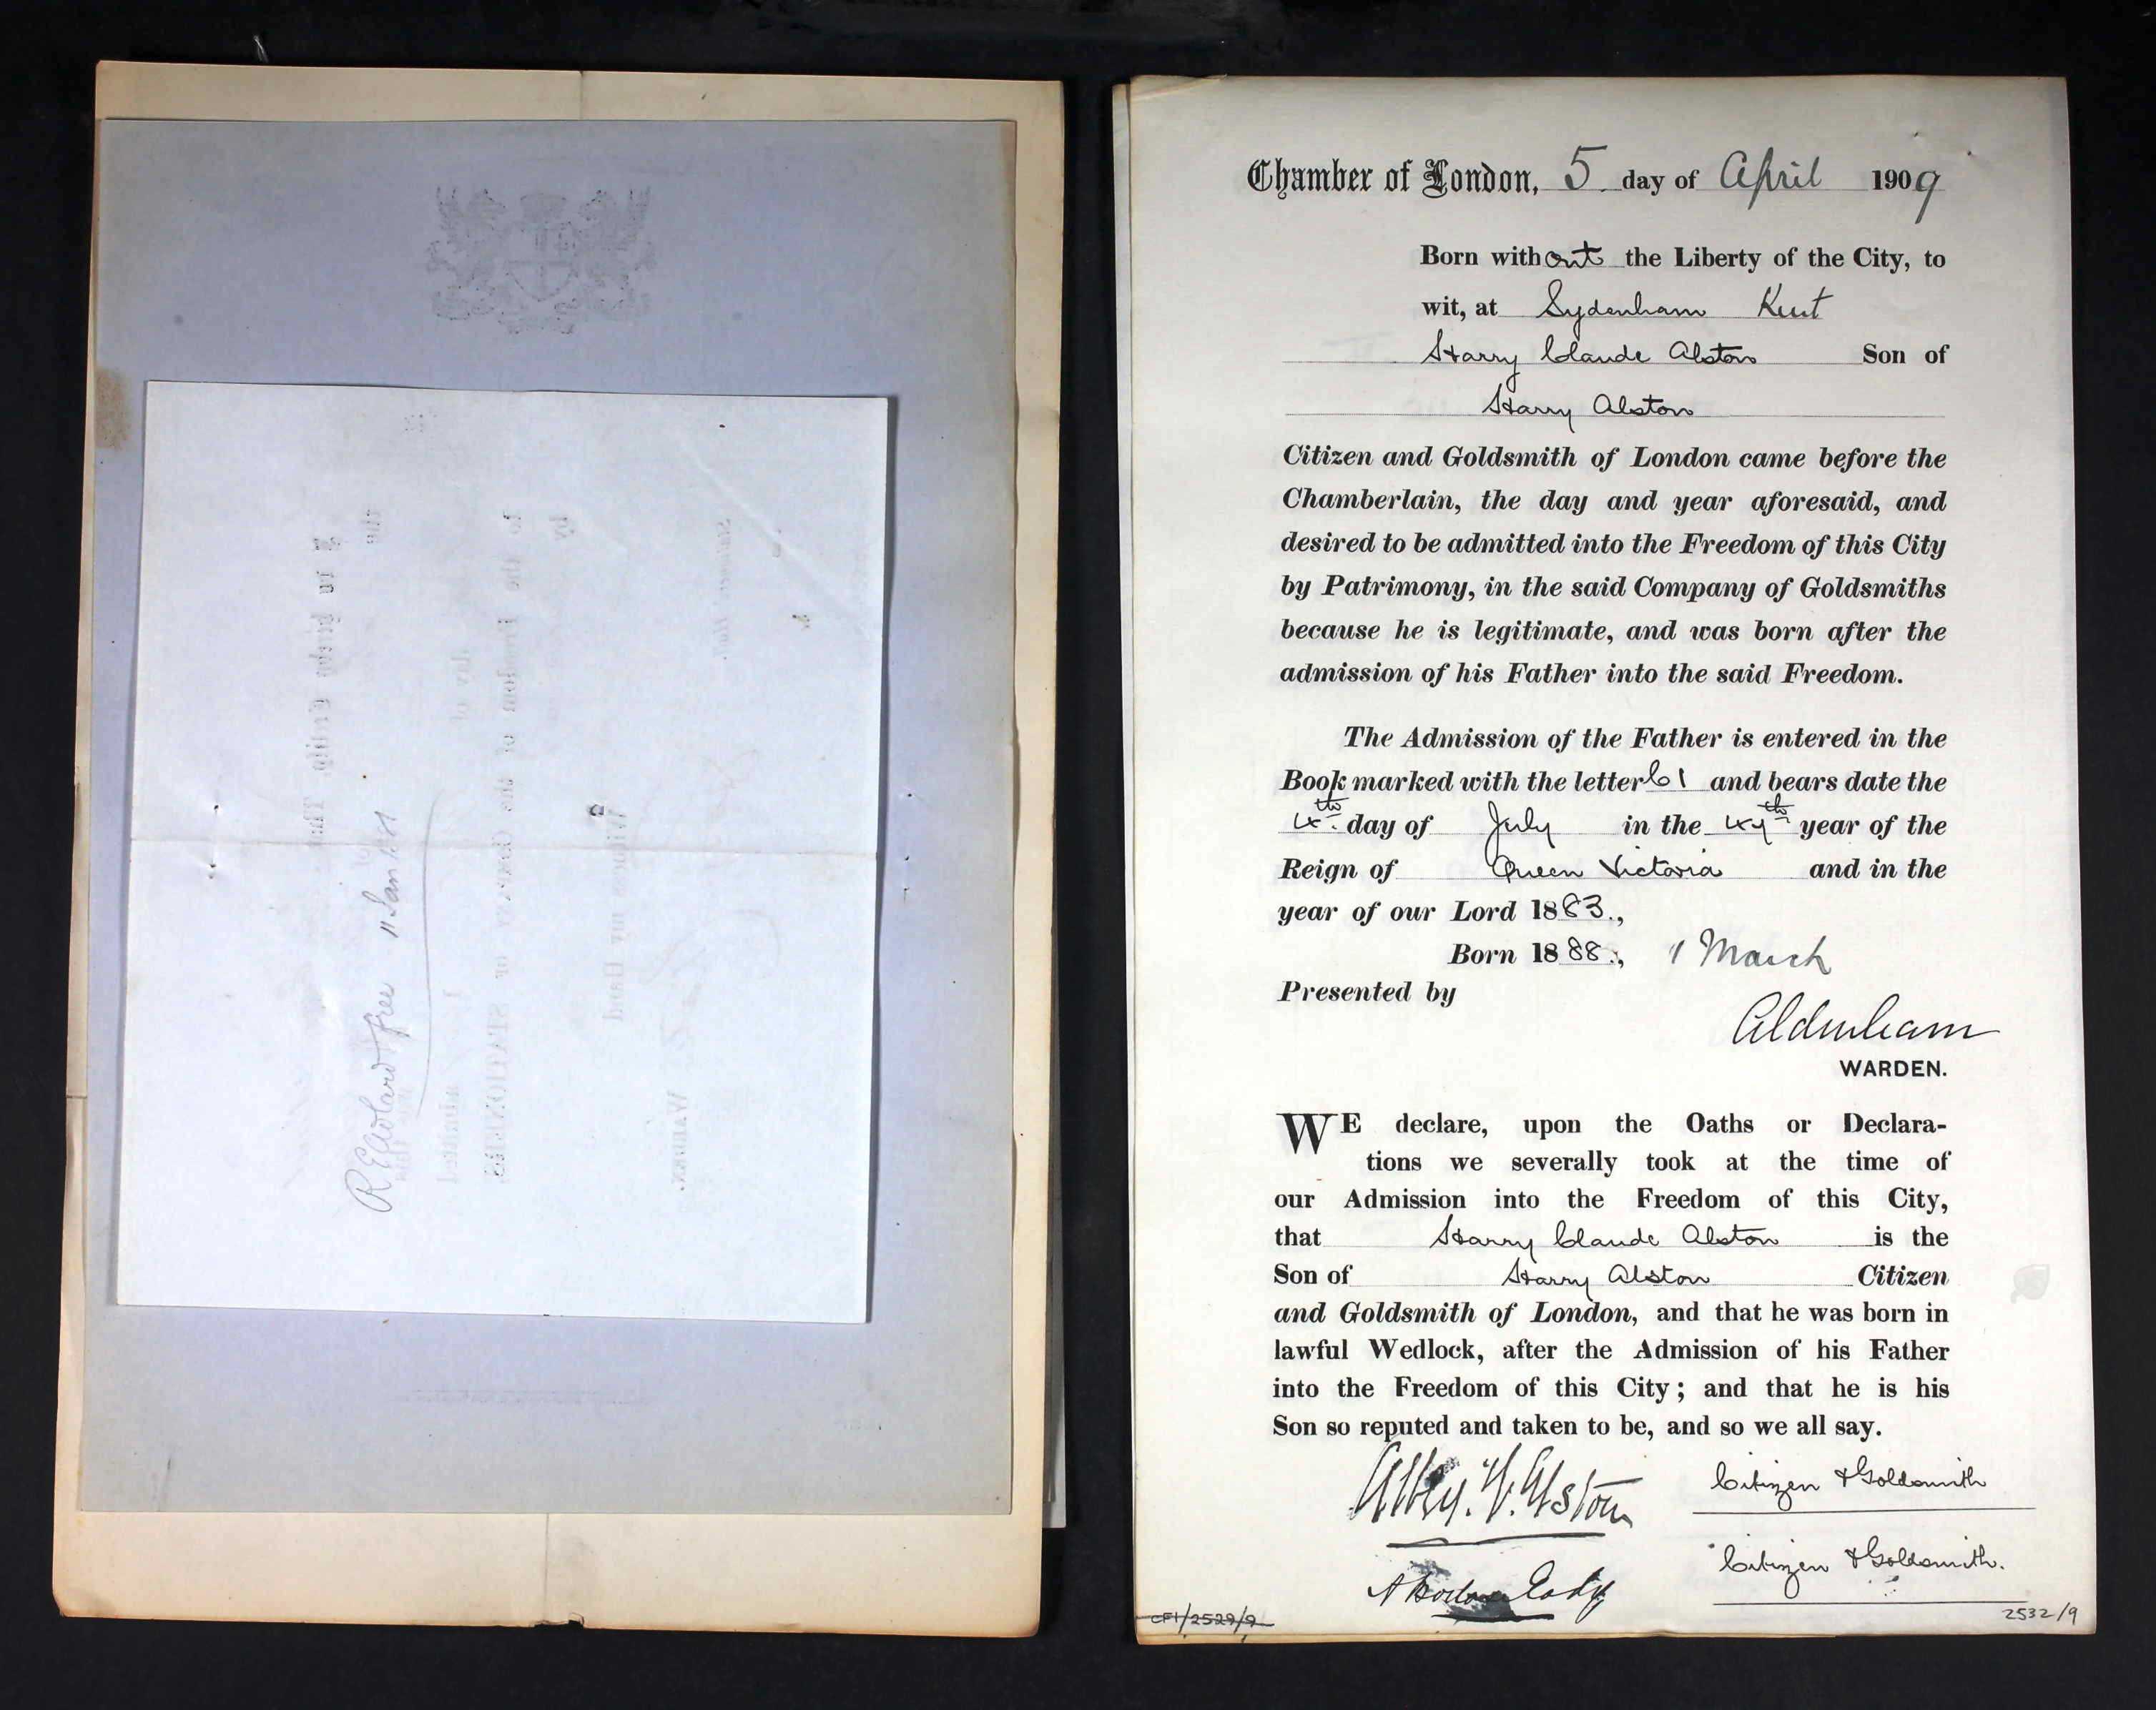 the
I do hereby certify That
R E Wolard free 11 Jan
day of
admitted
to the Freedom of the Company of STATIONERS,
by
Witness my Hand
WARDEN.
Stationers' Hall.
Chamber of London, 5 day of April 1909
Born without the Liberty of the City, to
wit, at Sydenham Kent
Harry Claude Alston Son of
Harry Alston
Citizen and Goldsmith of London came before the
Chamberlain, the day and year aforesaid, and
desired to be admitted into the Freedom of this City
by Patrimony, in the said Company of Goldsmiths
because he is legitimate, and was born after the
admission of his Father into the said Freedom.
The Admission of the Father is entered in the
Book marked with the letter C 1 and bears date the
4th day of July in the 47th year of the
Reign of Queen Victoria and in the
year of our Lord 1883.,
Born 1888., 1 March
Presented by
Aldenham
WARDEN.
WE declare, upon the Oaths or Declara-
tions we severally took at the time of
our Admission into the Freedom of this City,
that Harry Claude Alston is the
Son of Harry Alston Citizen
and Goldsmith of London, and that he was born in
lawful Wedlock, after the Admission of his Father
into the Freedom of this City; and that he is his
Son so reputed and taken to be, and so we all say.
Alston Citizen & Goldsmith
Citizen & Goldsmith.
CF1/2529/9
2532/9